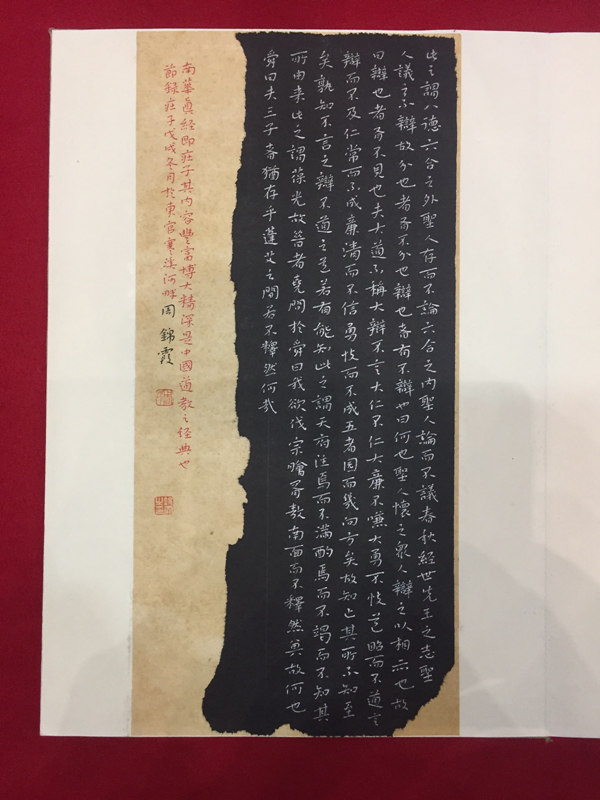 此之謂八德六合之外聖人存而不論六合之内聖人論而不議春秋經世先王之志聖
人議之不辯故分也者有不分也辯也者有不辯也曰何也聖人懷之衆人辯之以相示也故
曰辯也者有不見也夫大道不稱大辯不言大仁不仁大廉不嗛大勇不忮道昭而不道言
辯而不及仁常而不成廉清而不信勇忮而不成五者园而幾向方矣故知止其所不知至
矣孰知不言之辯不道之道若有能知此之謂天府注焉而不滿酌焉而不竭而不知其
所由来此之謂葆光故昔者堯問於舜曰我欲伐宗膾胥敖南面而不釋然其故何也
舜曰夫三子者猶存乎蓬艾之間若不釋然何哉
南華真經即莊子其内容豐富博大精深是中國道教之經典也
節録莊子戊戌冬月於東官寒溪河畔周錦霞